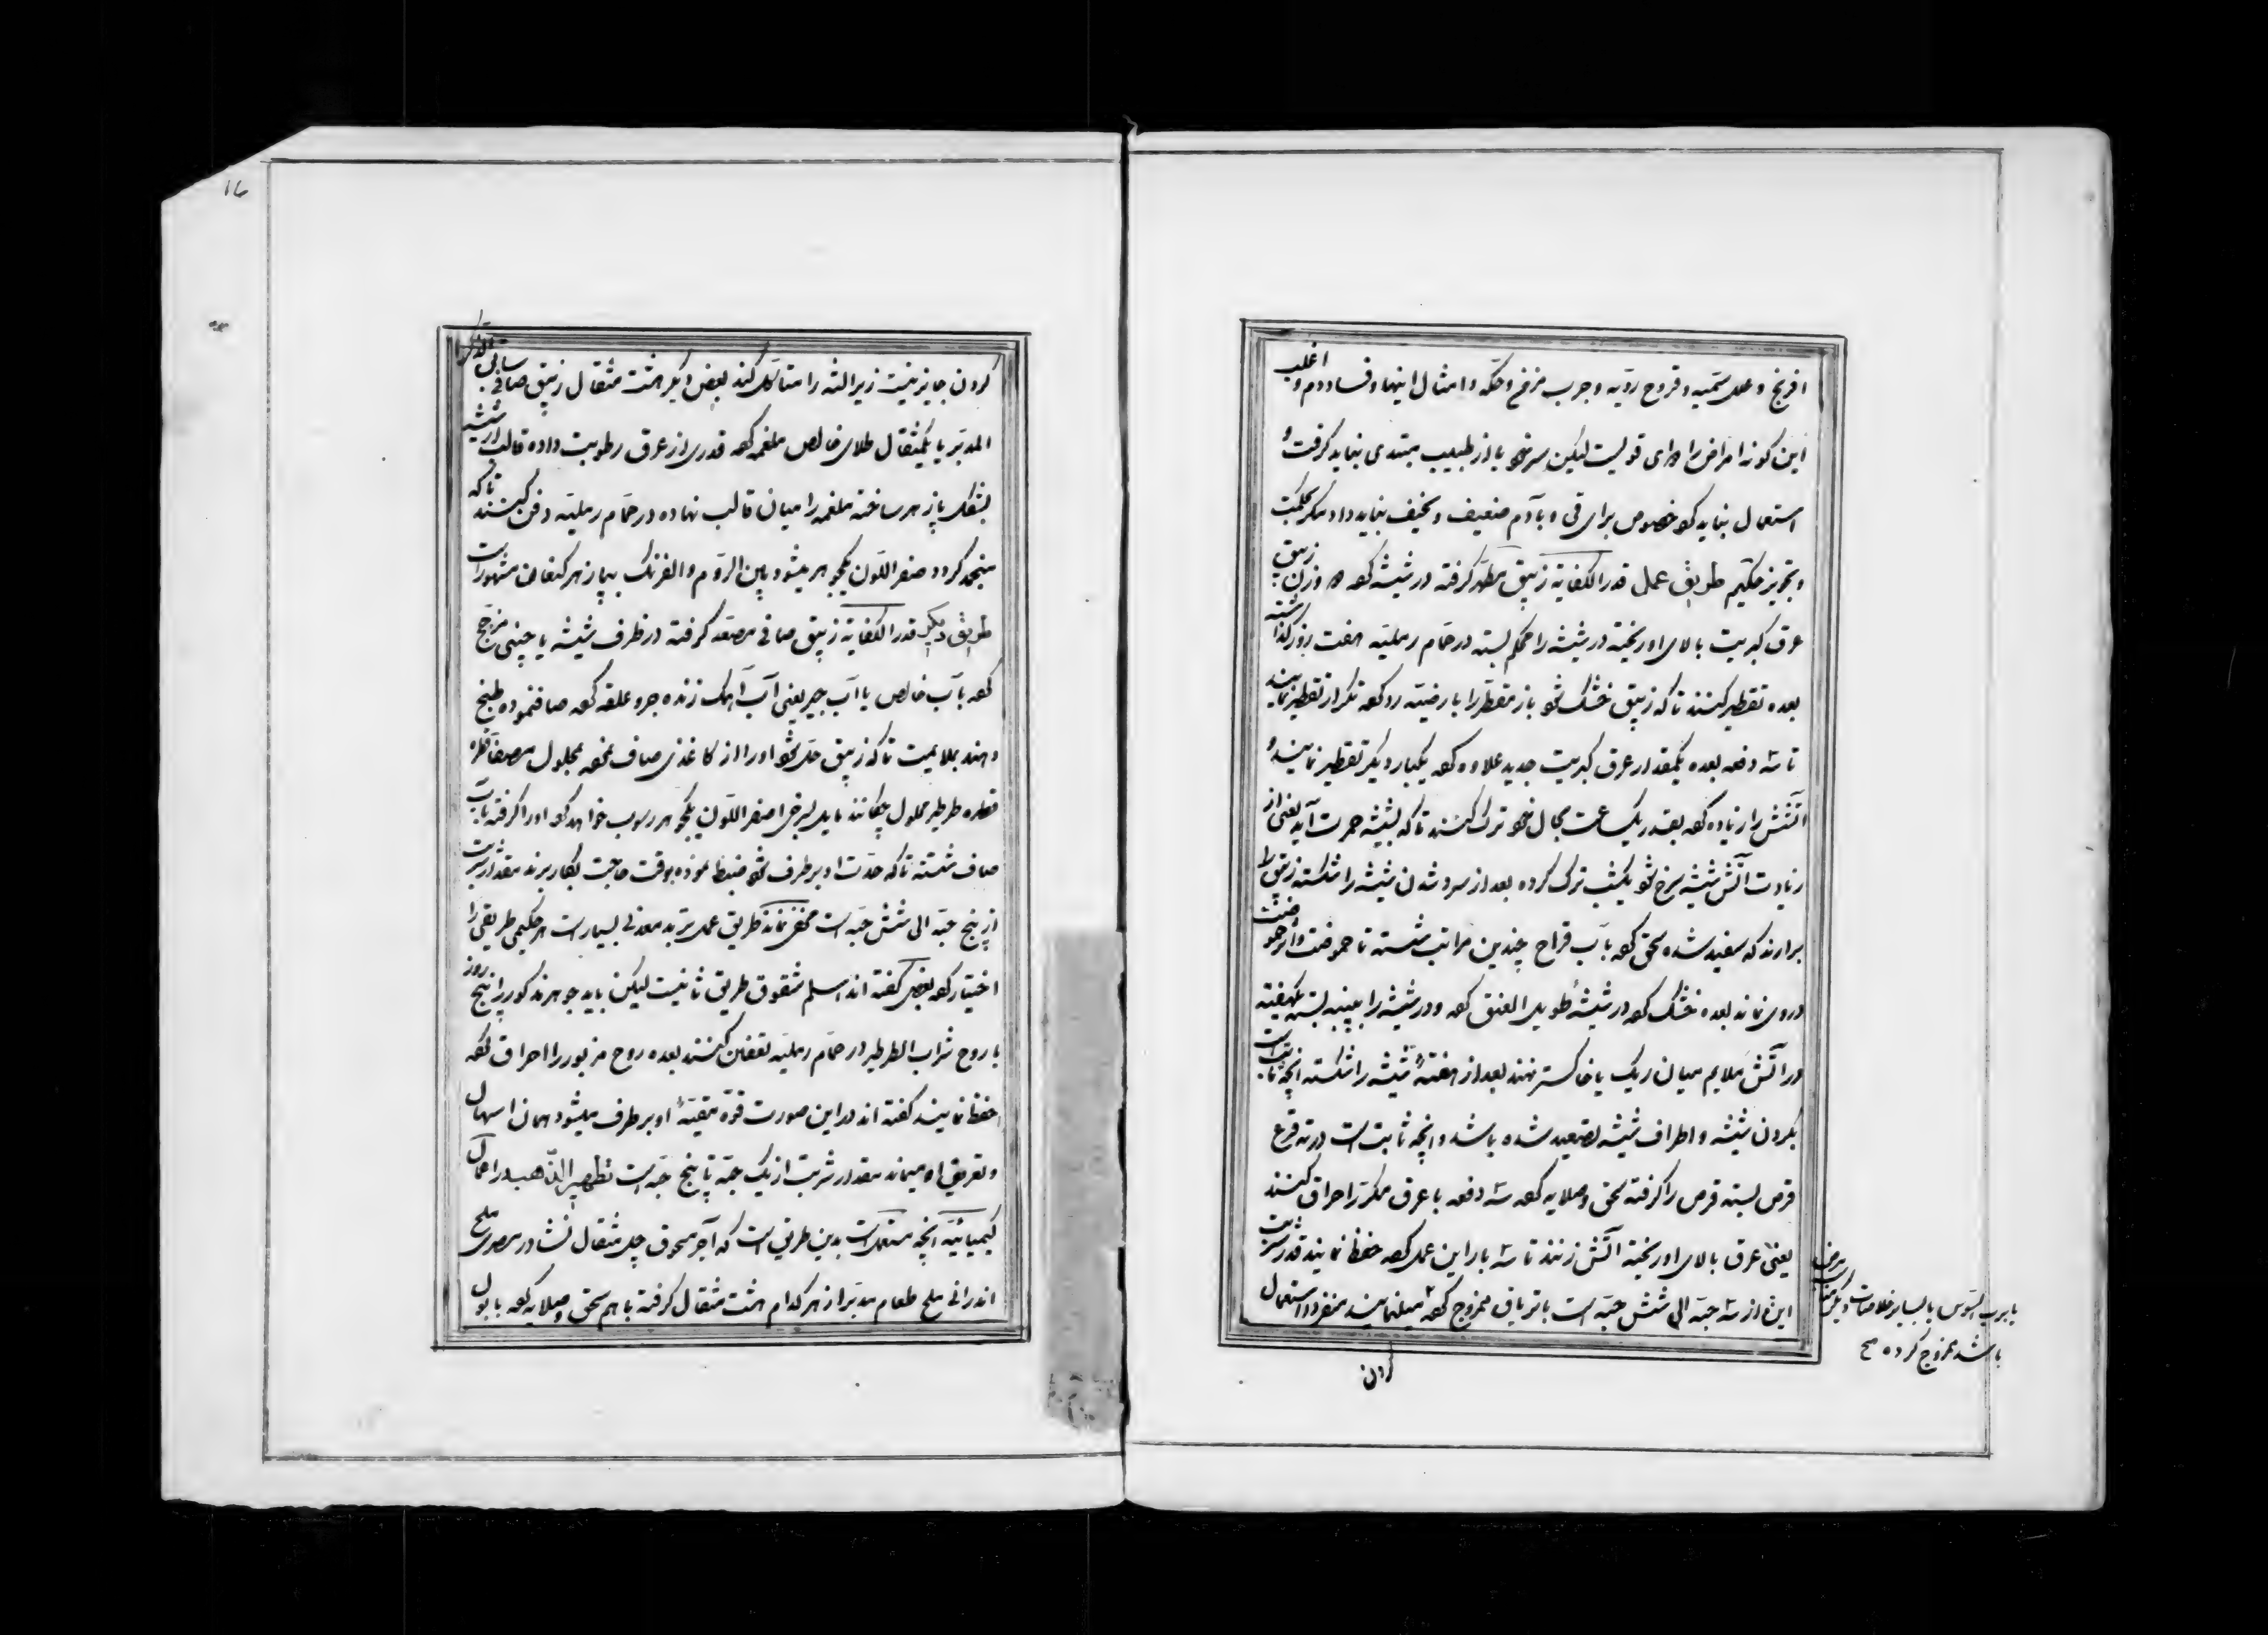 افرنج و علل سمیه و قروح ردیه و جرب مزخ و حکه و امثال اینها و فساد دم و اغلب
این کونه امراض را دوای قویست لیکن سرخو باز طبیب مبتدی نباید کرفت و
استعمال نباید کرد خصوص برای قی و بآدم ضعیف و نحیف نباید داد مکر بحکمت
و تجویز حکیم طریق عمل قدر الکفایة زیبق مطهر کرفته در شیشه کرده دو وزن زیبق
عرق کبریت بالای او ریخته در شیشه را محکم بسته در حمام رملیه هفت روز کذاشته
بعده تقطیر کنند تا که زیبق خشک شود باز متقطر را بارضیه رد کرده تکرار تقطیر نمایند
تا سه دفعه بعده یکمقدار عرق کبریت جدید علاوه کرده یکبار دیکر تقطیر نمایند و
آتش را زیاده کرده بقدر یک ساعت بحال خود ترک کنند تا که بشیشه حمرت آید یعنی از
زیادت آتش شیشه سرخ شود یکشب ترک کرده بعد از سرد شدن شیشه را شکسته زیبق را
برارند که سفید شده سحق کرده بآب قراح چندین مراتب شسته تا حموضت و اثر حموضت
دروی نماند بعده خشک کرده در شیشهٔ طویل العنق کرده و در شیشه را بپنبه بسته یکهفته
در آتش ملایم میان ریک یا خاکستر نهند بعد از هفتهٔ شیشه را شکسته انچه ثابت است
بکردن شیشه و اطراف شیشه تصعید شده باشد و انچه ثابت است در ته قرع
قرص بسته قرص را کرفته سحق و صلایه کرده سه دفعه با عرق مکرر احراق کنند
یعنی عرق بالای او ریخته آتش زنند تا سه بار این عمل کرده حفظ نمایند قدر شربت
این از سه حبه الی شش حبه است با تریاق ممزوج کرده میدهند منفردا استعمال
یا برب السوس یا بسایر خلاصات دیکر
باشد ممزوج کرده صح
کردن
۱۶
کردن جایز نیست زیرا لثه را متآکل کند بعض دیکر هشت مثقال زیبق صافی سابق الذکر
المدبر با یکمثقال طلای خالص ملغمه کرده قدری از عرق رطوبت داده قالب از شیشه
بشکل پازهر ساخته ملغمه را میان قالب نهاده در حمام رملیه دفن کنند تا که
منجمد کردد صفر اللون یکجوهر میشود بین الروم و الفرنک بپازهر کنعانی مشهور است
طریق دیکر قدر الکفایة زیبق صافی مصعد کرفته در ظرف شیشه یا چینی مزجج
کرده بآب خالص یا آب جیر یعنی آب آهک زنده جرو علقه کرده صاف نموده طبخ
دهند بملایمت تا که زیبق حل شود او را از کاغذی صاف نموده بمحلول مصفا قطره
قطره طرطیر محلول چکانند مایل بسرخی اصفر اللون یکجوهر رسوب خواهد کرد او را کرفته بآب
صاف شسته تا که حدت او برطرف شود ضبط نموده بوقت حاجت بکار برند مقدار شربت
از پنج حبه الی شش حبه است مخفی نماند طریق عمل تربد معدنی بسیار است هر حکیمی طریقی را
اختیار کرده بعض کفته اند اسلم شقوق طریق ثانیست لیکن باید جوهر مذکور را پنج روز
با روح شراب الطرطیر در حمام رملیه تعفین کنند بعده روح مزبور را احراق کرده
حفظ نمایند کفته اند در این صورت قوة مقیئهٔ او برطرف میشود همان اسهال
و تعریق او میماند مقدار شربت از یک حبه تا پنج حبه است تطهیر الذهب در اعمال
کیمیائیه انچه مستعمل است بدین طریق است که آجر مسحوق چهل مثقال نشادر مصری ملح
اندرانی ملح طعام مدبر از هر کدام هشت مثقال کرفته باهم سحق و صلایه کرده با بول